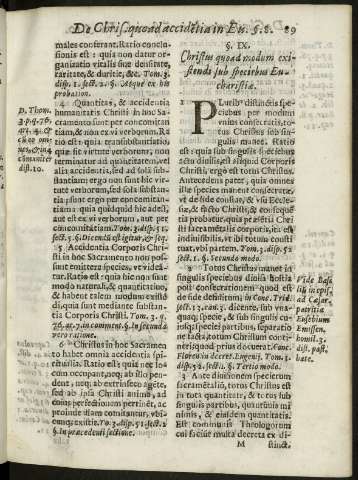 De Chris. quoad accidētia in Eu. §.8. 89
males conferant. Ratio conclu-
sionis est: quia non datur or-
ganizatio vitalis sine densitate,
raritate, & duritie, &c. Tom. 3.
disp. 1. sect. 2. §. Atque ex his
probatio.
4 Quantitas, & accidentia
humanitatis Christi in hoc Sa-
cramento sunt per concomitan-
tiam, & non ex vi verborum. Ra-
tio est: quia transubstantiatio,
quæ fit virtute verborum, non
terminatur ad quantitatem, vel
alia accidentia, sed ad solā sub-
stantiam ergo non sunt hic vir-
tute verborum, sed sola substan-
tia
accidentia autem
aut est ex vi verborum, aut per
concomitantiā. Tom. 3. disp. 51.
sect. 3. §. Dicendū est igitur, & seq.
5 Accidentia Corporis Chri-
sti in hoc Sacramento non pos-
sunt emittere species, vt videā-
tur. Ratio est: quia hic non sunt
modo naturali, & quantitatiuo,
& habent talem modum existē-
di, quia sunt mediante substan-
tia Corporis Christi. Tom. 3. q.
76. ar. 7. in comment. §. In secunda
ratione.
6 Christus in hoc Sacramen-
to habet omnia accidentia spi-
ritualia. Ratio est: quia nec lo-
cum occupant, aut ab illo pen-
dent, neq; ab extrinseco agēte,
sed ab ipsa Christi anima, ad
cuius perfectionem pertinēt, ac
proinde illam comitantur, vbi-
cumq; existit. To. 3. disp. 51. sect. 2.
§. In præcedenti sectione.
D. Thom.
3. p. q. 76.
disp. 10.
§. IX.
Christus quoad modum exi-
stendi sub speciebus Eu-
charistiæ.
1 PLuribus distinctis spe-
ciebus per modum
vnius consecratis, to-
tus Christus sub sin-
gulis manet. Ratio
est: quia sub singulis speciebus
actu diuisis, est aliquid Corporis
Christi, ergo est totus Christus.
Antecedens patet, quia omnes
illæ species manent consecratæ,
vt de fide constat, & vsu Eccle-
siæ, & facto Christi, & consequē-
tia probatur, quia præsentia Chri-
sti sacramentalis corporis, ita est
indiuisibilis, vt ibi totum consti-
tuat, vbi partem. Tom. 3. disp. 52.
sect. 1. §. Secundo modo.
2 Totus Christus manet in
singulis speciebus diuisæ hostiæ
post consecrationem: quod est
de fide definitum in Conc. Trid.
sess. 13. can. 3. dicente, sub vna-
quaq; specie, & sub singulis cu-
iusq; speciei partibus, separatio-
ne facta, totum Christum conti-
neri; quod prius docuerat Conc.
Floren. in decret. Eugenij. Tom. 3.
disp. 52. sect. 2. §. Tertio modo.
3 Ante diuisionem specierum
sacramētaliū, totus Christus est
in tota quantitate, & totus sub
singulis partibus, quamuis mi-
nimis, & eiusdem quantitatis.
Est communis Theologorum
cui fauent multa decreta ex di-
M stinct.
Vide Basi-
ad Cæsar.
Eusebium
Emissen.
homil. 3.
dist. past.